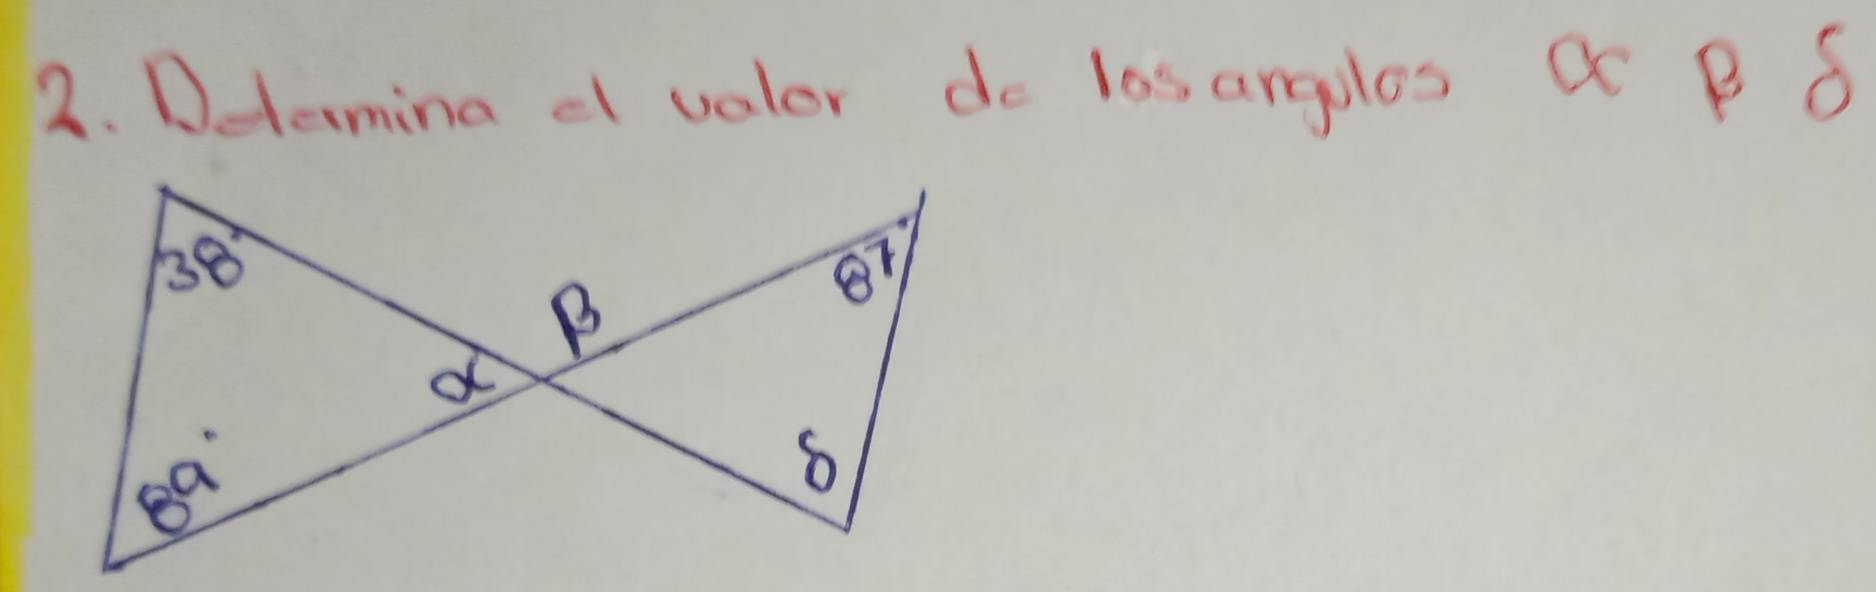 2. Determina el valor de los angulos α β δ
38°
β
87°
α
89°
δ